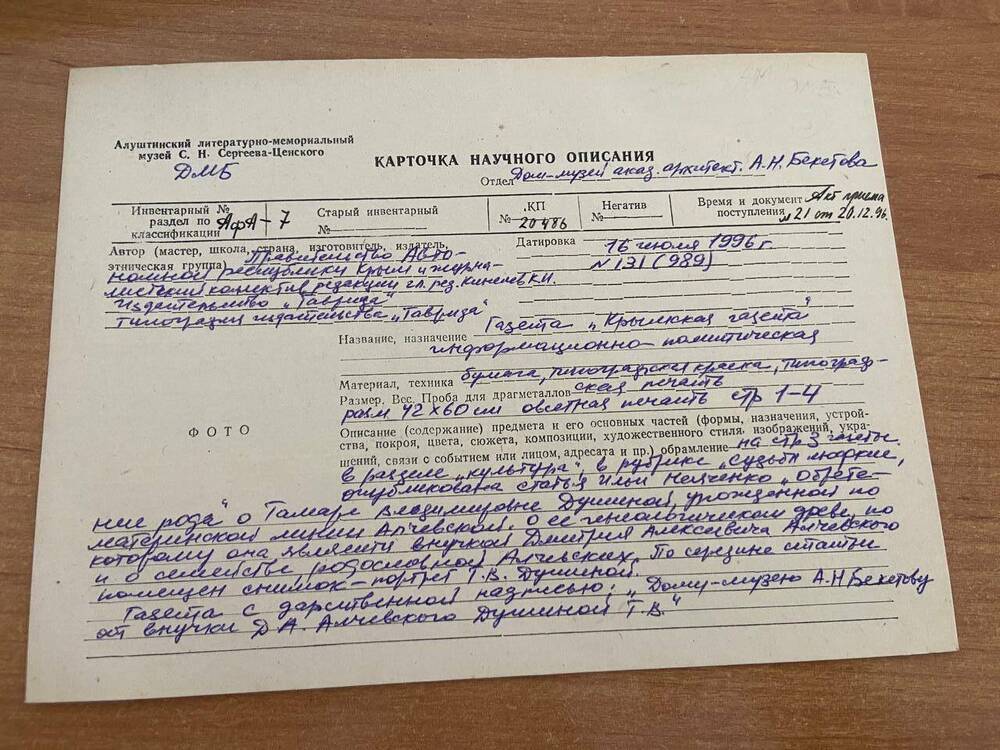 Алуштинский литературно-мемориальный
музей С. Н. Сергеева-Ценского
ДМБ
КАРТОЧКА НАУЧНОГО ОПИСАНИЯ
Отдел Дом-музей акад. архитект. А.Н. Бекетова
Инвентарный №
раздел по
классификации АфА-7
Старый инвентарный
№
КП
№ 20486
Негатив
№
Время и документ Акт приема
поступления №21 от 20.12.96.
Автор (мастер, школа, страна, изготовитель, издатель,
этническая группа) Правительство Авто-
номной республики Крым и журна-
листский коллектив редакции гл. ред.
издательство „Таврида"
типография издательства „Таврида"
Датировка 16 июля 1996 г
N 131 (989)
Название, назначение Газета „Крымская газета"
информационно-политическая
Материал, техника бумага, типографская краска, типограф-
Размер. Вес. Проба для драгметаллов ская печать
разм 42х60 см офсетная печать стр 1-4
ФОТО
Описание (содержание) предмета и его основных частей (формы, назначения, устрой-
ства, покроя, цвета, сюжета, композиции, художественного стиля, изображений, укра-
шений, связи с событием или лицом, адресата и пр.) обрамление на стр 3 газеты
в разделе „культура", в рубрике „судьбы людские,
опубликована статья Ильи „Обрете-
ние рода" о Тамаре Владимировне Душиной, урожденной по
материнской линии Алчевской. о её генеологическом древе, по
которому она является внучкой Дмитрия Алексеевича Алчевского
и о семействе родословной Алчевских. По середине статьи
помещен снимок-портрет Т.В. Душиной.
Газета с дарственной надписью: „Дому-музею А.Н Бекетову
от внучки Д А. Алчевского Душиной Т.В."